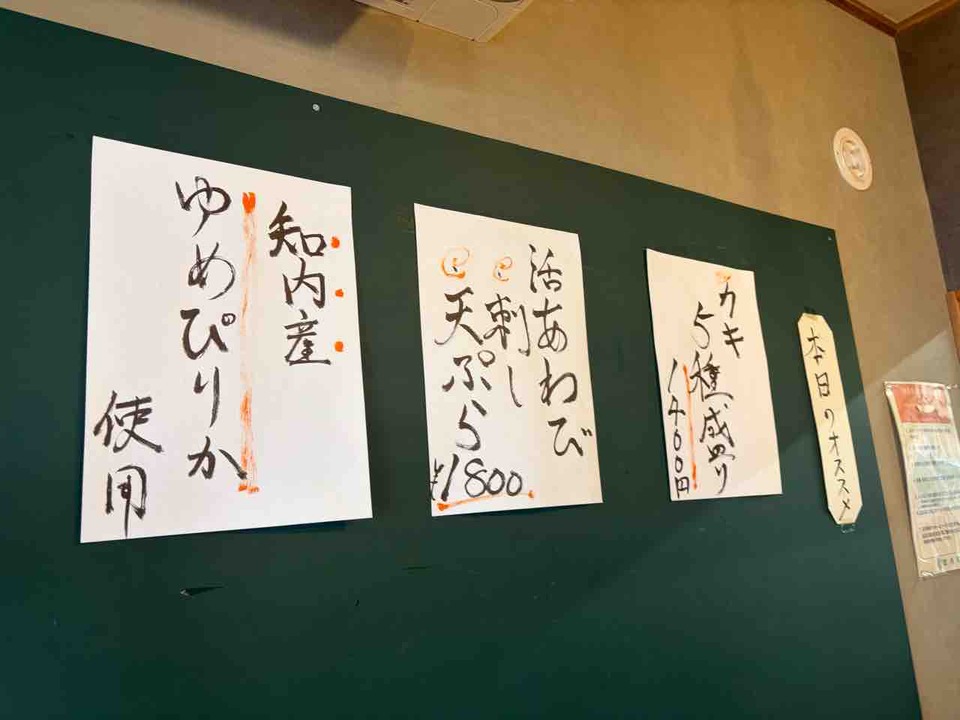 本日のオススメ
カキ
5種盛り
1400円
活あわび
刺し
天ぷら
¥1800
知内産
ゆめぴりか
使用